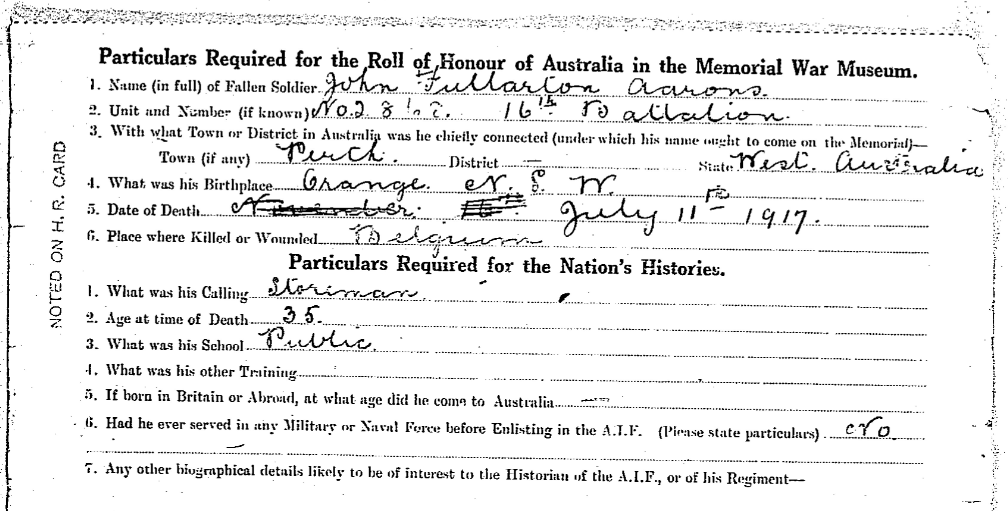 Particulars Required for the Roll of Honour of Australia in the Memorial War Museum.
1. Name (in full) of Fallen Soldier John Fullarton Aarons.
2. Unit and Number (if known) No. 2 8 16th Battalion.
3. With what Town or District in Australia was he chiefly connected (under which his name ought to come on the Memorial)—
Town (if any) Perth. District — State West. Australia
4. What was his Birthplace Orange. N. S. W.
5. Date of Death November. July 11th 1917.
6. Place where Killed or Wounded Belgium
Particulars Required for the Nation's Histories.
1. What was his Calling Storeman
2. Age at time of Death 35.
3. What was his School Public.
4. What was his other Training
5. If born in Britain or Abroad, at what age did he come to Australia —
6. Had he ever served in any Military or Naval Force before Enlisting in the A.I.F. (Please state particulars) No
—
7. Any other biographical details likely to be of interest to the Historian of the A.I.F., or of his Regiment—
NOTED ON H. R. CARD